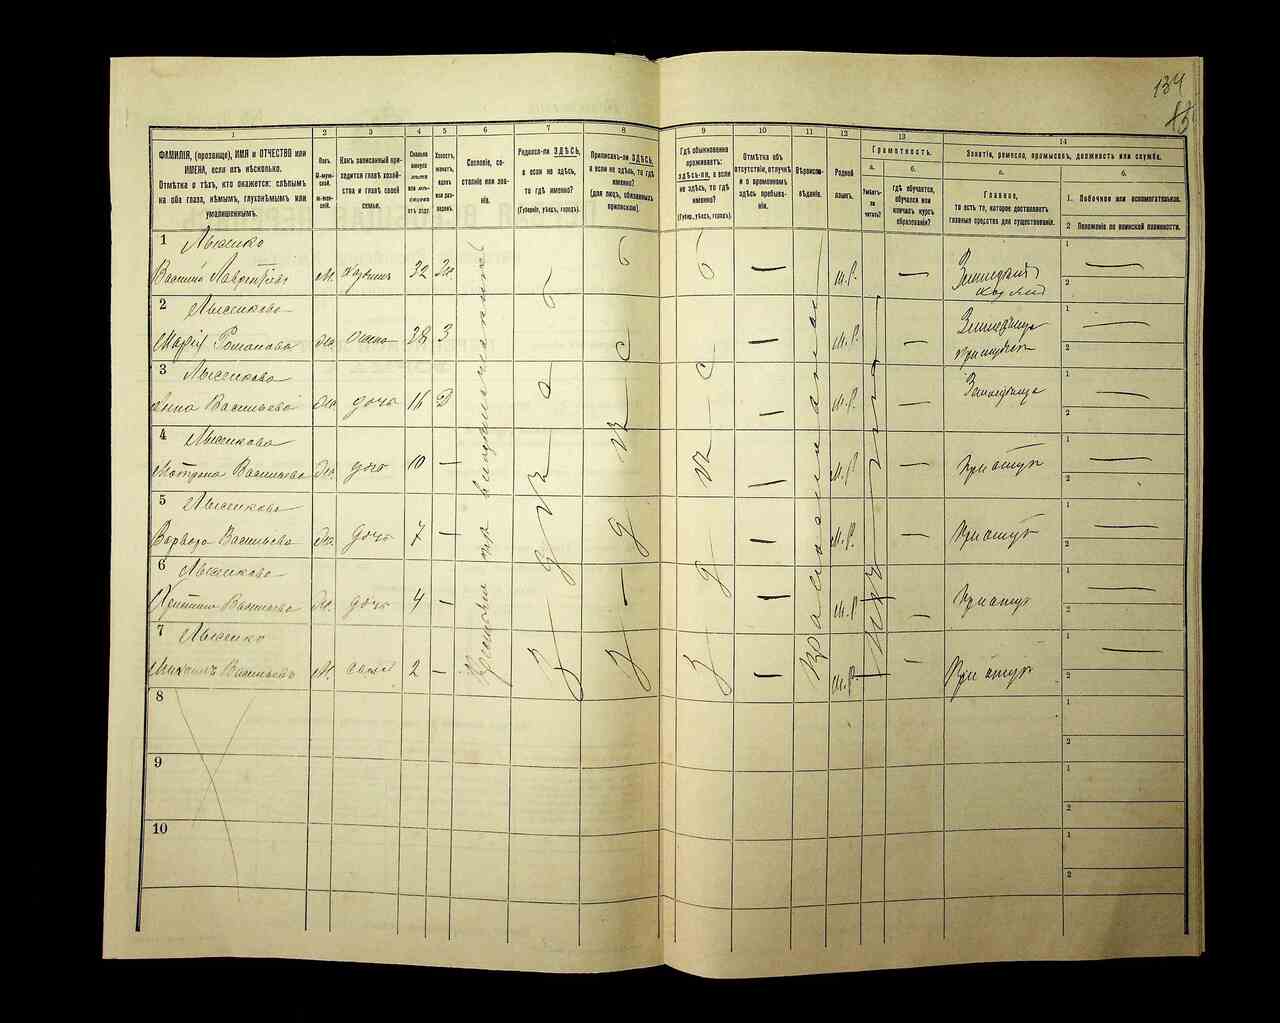 134
1
2
3
4
5
6
7
8
9
10
11
12
13
14
ФАМИЛІЯ, (прозвище), ИМЯ и ОТЧЕСТВО или
ИМЕНА, если ихъ нѣсколько.
Отмѣтка о тѣхъ, кто окажется: слѣпымъ
на оба глаза, нѣмымъ, глухонѣмымъ или
умалишеннымъ.
Полъ.
М-мужской.
Ж-женскій.
Какъ записанный при-
ходится главѣ хозяй-
ства и главѣ своей
семьи.
Сколько
минуло
лѣтъ
или мѣ-
сяцевъ
отъ роду.
Холостъ,
женатъ,
вдовъ
или раз-
веденъ.
Сословіе, со-
стояніе или зва-
ніе.
Родился-ли ЗДѢСЬ,
а если не здѣсь,
то гдѣ именно?
(Губернія, уѣздъ, городъ).
Приписанъ-ли ЗДѢСЬ,
а если не здѣсь, то гдѣ
именно?
(для лицъ, обязанныхъ
припискою).
Гдѣ обыкновенно
проживаетъ:
здѣсь-ли, а если
не здѣсь, то гдѣ
именно?
(Губер., уѣздъ, городъ).
Отмѣтка объ
отсутствіи, отлучкѣ
и о временномъ
здѣсь пребыва-
ніи.
Вѣроиспо-
вѣданіе.
Родной
языкъ.
Грамотность.
а.
б.
Умѣетъ-
ли
читать?
Гдѣ обучается,
обучался или
кончилъ курсъ
образованія?
Занятіе, ремесло, промыселъ, должность или служба.
а.
б.
Главное,
то есть то, которое доставляетъ
главныя средства для существованія.
1. Побочное или вспомогательное.
2 Положеніе по воинской повинности.
1 Лысенко
Василій Лаврентіевъ м. хозяинъ 32 Ж. м.р. — 1 —
2
2 Лысенкова
Марія Романова ж. жена 38 З м.р. — 1 —
2
3 Лысенкова
Анна Васильева ж. дочь 16 Д м.р. — 1 —
2
4 Лысенкова
Мотрона Васильева ж. дочь 10 — м.р. — При отцѣ 1 —
2
5 Лысенкова
Варвара Васильева ж. дочь 7 — м.р. — При отцѣ 1 —
2
6 Лысенкова
Васильева ж. дочь 4 — м.р. — При отцѣ 1 —
2
7 Лысенко
Михаилъ Васильевъ м. сынъ 2 — м.р. — При отцѣ 1 —
2
8 1
2
9 1
2
10 1
2
Здѣсь
Здѣсь
Здѣсь
Православное